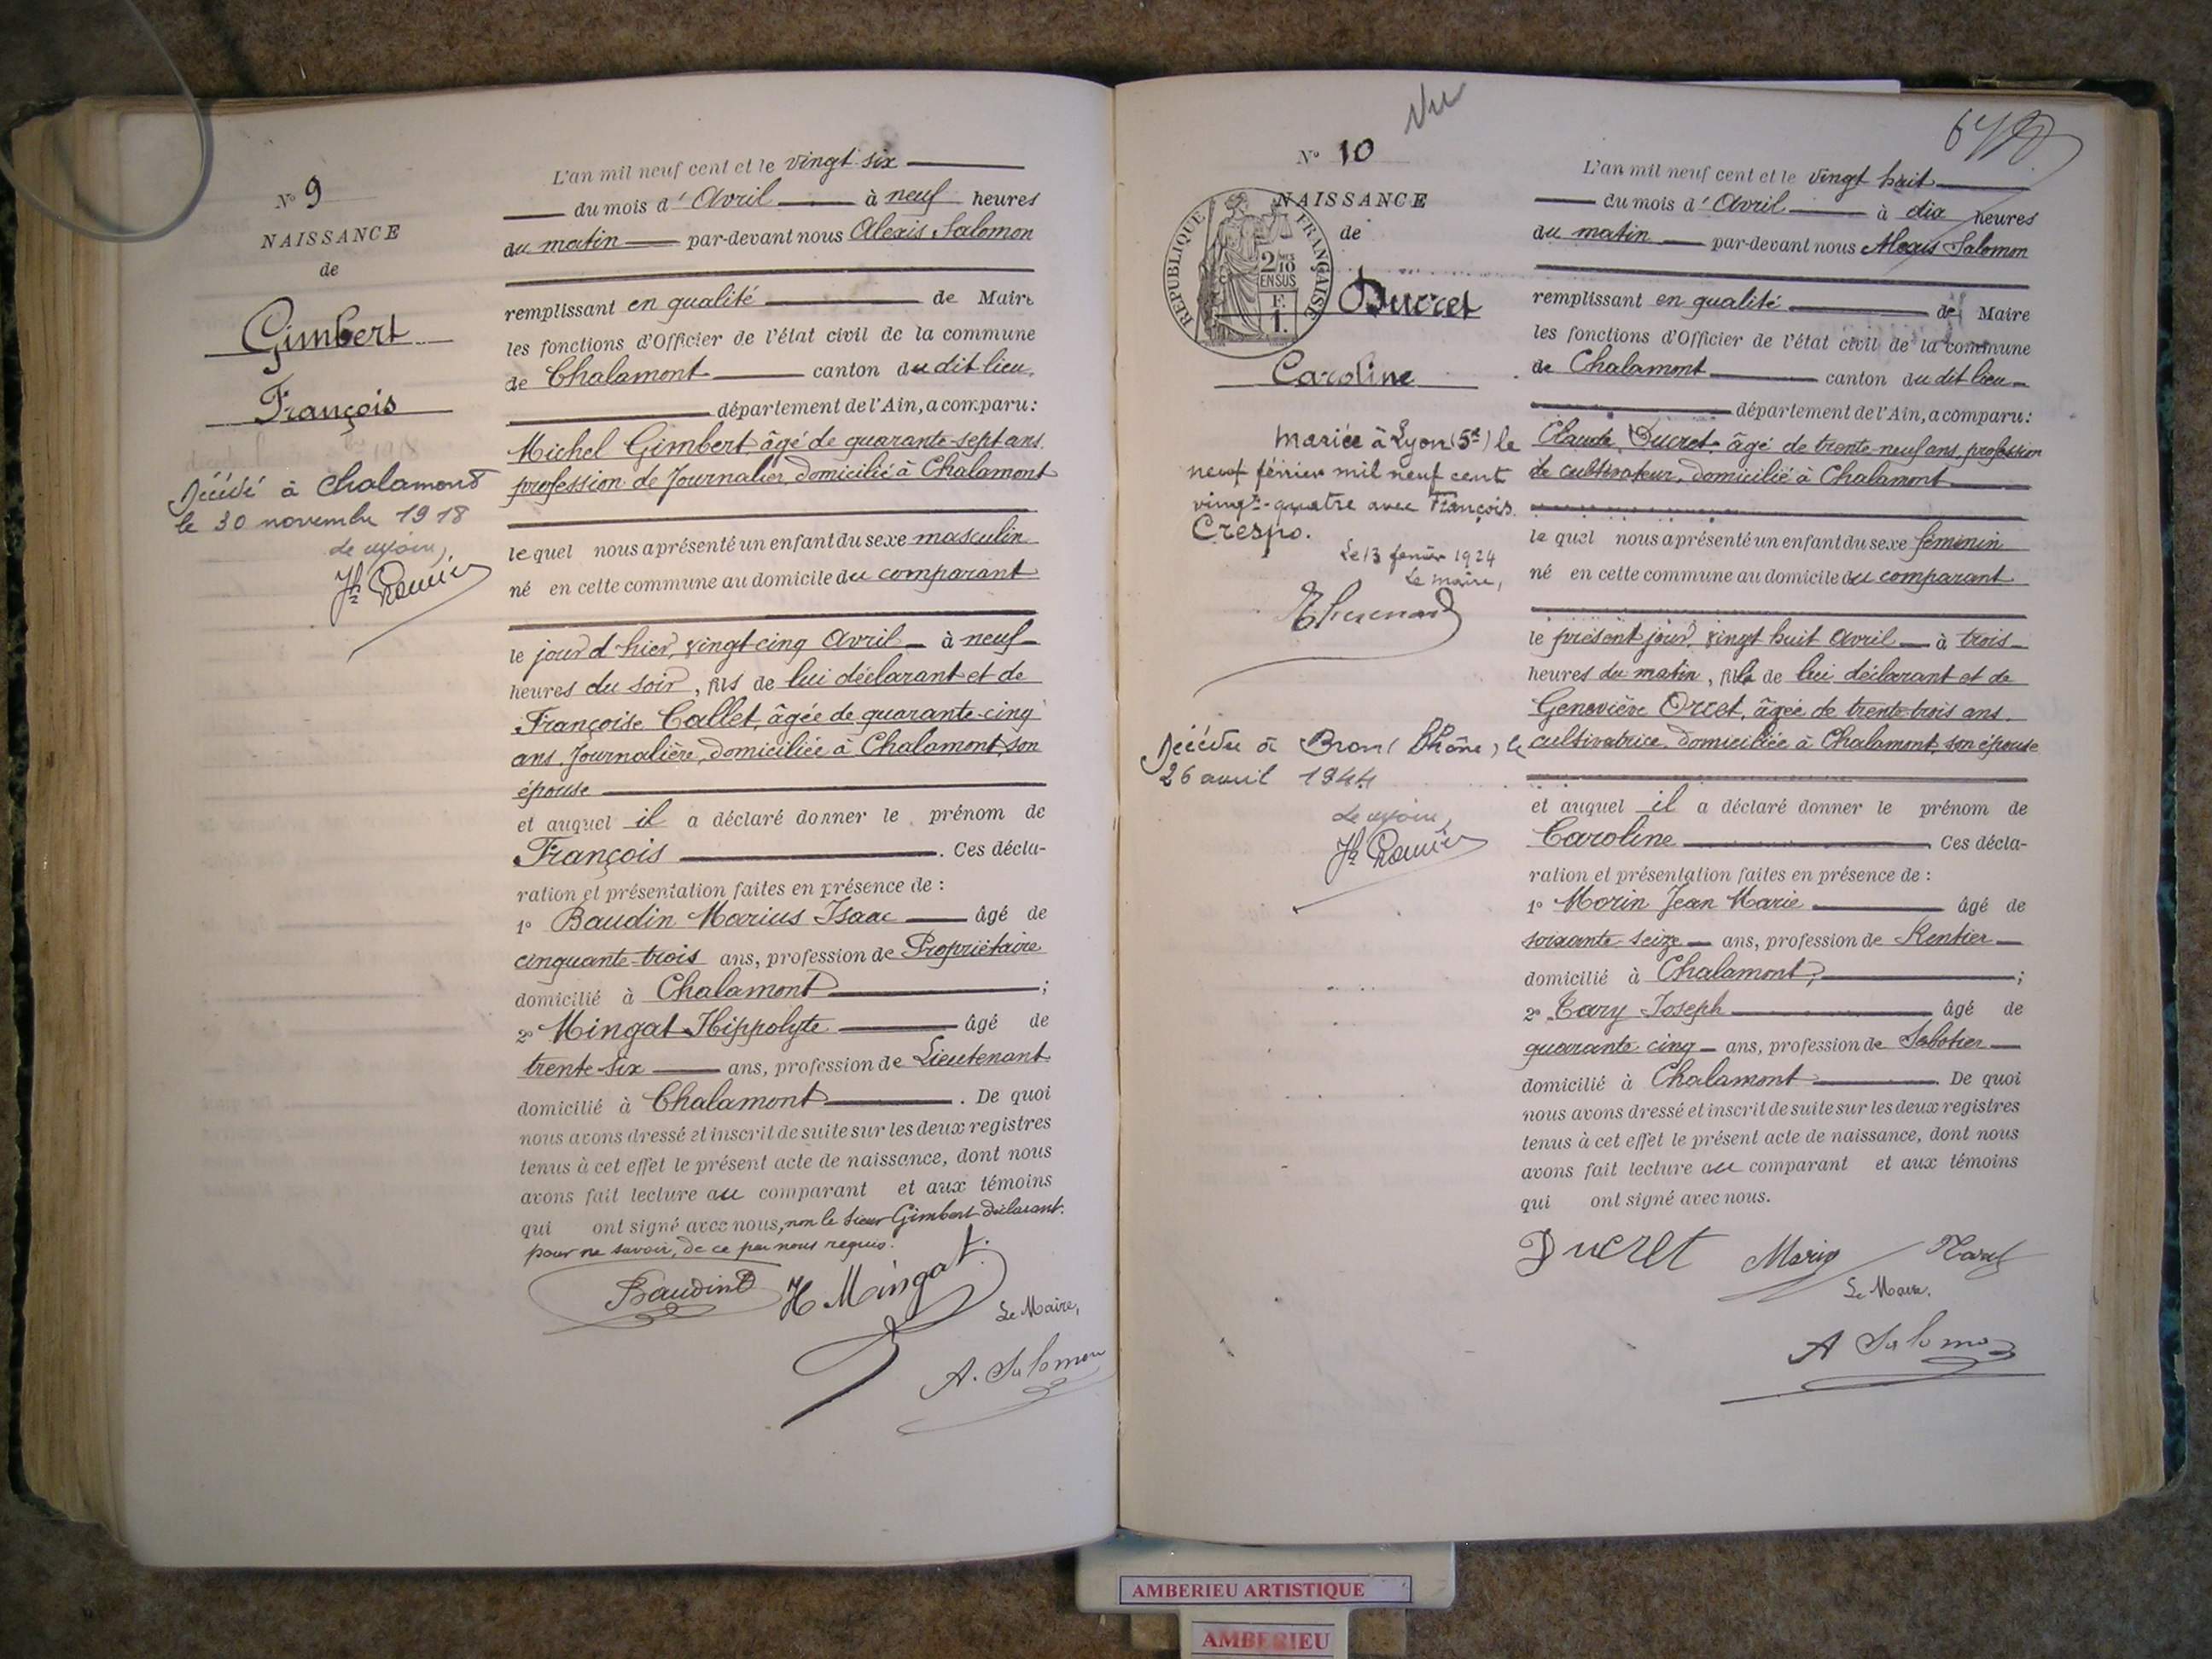 N° 9
NAISSANCE
de
Gimbert
François
Décédé à Chalamont
le 30 novembre 1918
L'an mil neuf cent et le vingt six
du mois d'Avril à neuf heures
du matin par-devant nous Alexis Salomon
remplissant en qualité de Maire
les fonctions d'Officier de l'état civil de la commune
de Chalamont canton du dit lieu.
département de l'Ain, a comparu:
Michel Gimbert, âgé de quarante-sept ans,
profession de Journalier, domicilié à Chalamont
le quel nous a présenté un enfant du sexe masculin
né en cette commune au domicile du comparant
le jour d'hier, vingt-cinq Avril à neuf
heures du soir, fils de lui déclarant et de
Françoise Callet, âgée de quarante-cinq
ans, Journalière, domiciliée à Chalamont, son
épouse
et auquel il a déclaré donner le prénom de
François. Ces décla-
ration et présentation faites en présence de :
1° Baudin Marius Isaac âgé de
cinquante-trois ans, profession de Propriétaire
domicilié à Chalamont ;
2° Mingat Hippolyte âgé de
trente-six ans, profession de Lieutenant
domicilié à Chalamont. De quoi
nous avons dressé et inscrit de suite sur les deux registres
tenus à cet effet le présent acte de naissance, dont nous
avons fait lecture au comparant et aux témoins
qui ont signé avec nous, non le sieur Gimbert déclarant.
pour ne savoir, de ce par nous requis.
Baudin H Mingat
Le Maire,
A. Salomon
Vu
N° 10
NAISSANCE
de
REPUBLIQUE FRANÇAISE
2/10 EN SUS
Ducret
Caroline
Mariée à Lyon (5e) le
neuf février mil neuf cent
vingt-quatre avec François
Crespo.
Le 13 février 1924
Le maire,
Décédée à Bron (Rhône) le
26 avril 1944
L'an mil neuf cent et le vingt huit
du mois d'Avril à dix heures
du matin par-devant nous Alexis Salomon
remplissant en qualité de Maire
les fonctions d'Officier de l'état civil de la commune
de Chalamont canton du dit lieu
département de l'Ain, a comparu:
Claude Ducret, âgé de trente-neuf ans, profession
de cultivateur, domicilié à Chalamont
le quel nous a présenté un enfant du sexe féminin
né en cette commune au domicile du comparant
le présent jour, vingt huit Avril à trois
heures du matin, fille de lui déclarant et de
Geneviève Orcet, âgée de trente-trois ans.
cultivatrice, domiciliée à Chalamont, son épouse
et auquel il a déclaré donner le prénom de
Caroline Ces décla-
ration et présentation faites en présence de :
1° Morin Jean Marie âgé de
soixante-seize ans, profession de Rentier
domicilié à Chalamont ;
2° Cary Joseph âgé de
quarante-cinq ans, profession de Sabotier
domicilié à Chalamont. De quoi
nous avons dressé et inscrit de suite sur les deux registres
tenus à cet effet le présent acte de naissance, dont nous
avons fait lecture au comparant et aux témoins
qui ont signé avec nous.
Ducret Morin
Le Maire.
A Salomon
AMBERIEU ARTISTIQUE
AMBERIEU